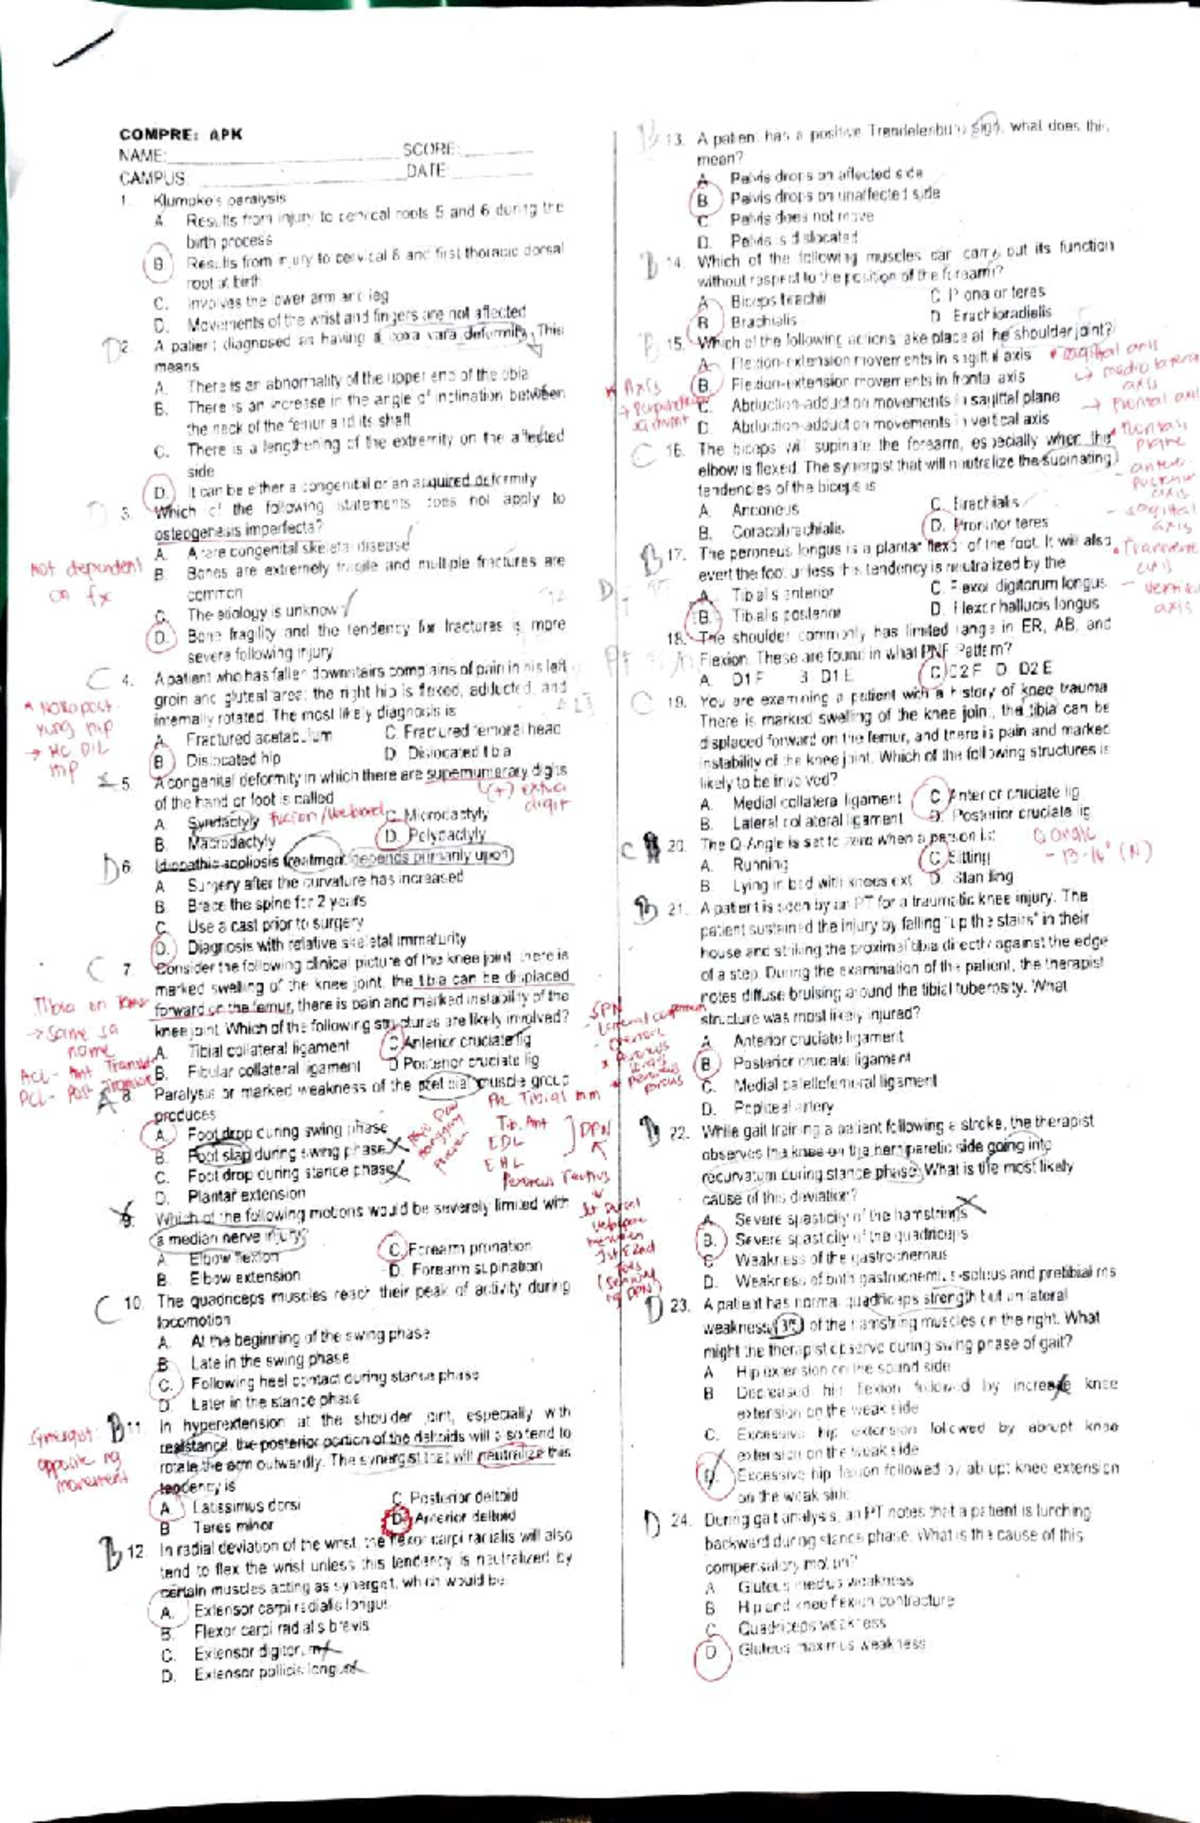 COMPRE: APK
NAME: SCORE:
CAMPUS DATE:
1. Klumpke's paralysis
A. Results from injury to cervical roots 5 and 6 during the
birth process
B. Results from injury to cervical 8 and first thoracic dorsal
root at birth
C. Involves the lower arm and leg
D. Movements of the wrist and fingers are not affected
D 2. A patient diagnosed as having a coxa vara deformity. This
means
A. There is an abnormality of the upper end of the tibia
B. There is an increase in the angle of inclination between
the neck of the femur and its shaft
C. There is a lengthening of the extremity on the affected
side
D. It can be either a congenital or an acquired deformity
D 3. Which of the following statements does not apply to
osteogenesis imperfecta?
A. A rare congenital skeletal disease
not dependent
on fx
B. Bones are extremely fragile and multiple fractures are
common
C. The etiology is unknow
D. Bone fragility and the tendency for fractures is more
severe following injury
C 4. A patient who has fallen downstairs complains of pain in his left
groin and gluteal area; the right hip is flexed, adducted, and
internally rotated. The most likely diagnosis is
A. Fractured acetabulum C. Fractured femoral head
B. Dislocated hip D. Dislocated tibia
yung hip
hip
5. A congenital deformity in which there are supernumerary digits
of the hand or foot is called
(+) extra
digit
A. Syndactyly C. Microdactyly
B. Macrodactyly D. Polydactyly
D 6. Idiopathic scoliosis treatment depends primarily upon
A. Surgery after the curvature has increased
B. Brace the spine for 2 years
C. Use a cast prior to surgery
D. Diagnosis with relative skeletal immaturity
C 7. Consider the following clinical picture of the knee joint: there is
marked swelling of the knee joint, the tibia can be displaced
forward on the femur, there is pain and marked instability of the
knee joint. Which of the following structures are likely involved?
Tibia on femur
→ same sa
name
A. Tibial collateral ligament C. Anterior cruciate lig
B. Fibular collateral ligament D. Posterior cruciate lig
A 8. Paralysis or marked weakness of the pretibial muscle group
produces
A. Foot drop during swing phase
B. Foot slap during swing phase
C. Foot drop during stance phase
D. Plantar extension
Tib. Ant
EDL
EHL
Peroneus Tertius
DPN
9. Which of the following motions would be severely limited with
a median nerve injury?
A. Elbow flexion C. Forearm pronation
B. Elbow extension D. Forearm supination
C 10. The quadriceps muscles reach their peak of activity during
locomotion
A. At the beginning of the swing phase
B. Late in the swing phase
C. Following heel contact during stance phase
D. Later in the stance phase
B 11. In hyperextension at the shoulder joint, especially with
resistance, the posterior portion of the deltoids will also tend to
rotate the arm outwardly. The synergist that will neutralize this
tendency is
opposite ng
movement
A. Latissimus dorsi C. Posterior deltoid
B. Teres minor D. Anterior deltoid
B 12. In radial deviation of the wrist, the flexor carpi radialis will also
tend to flex the wrist unless this tendency is neutralized by
certain muscles acting as synergist, which would be
A. Extensor carpi radialis longus
B. Flexor carpi radialis brevis
C. Extensor digitorum
D. Extensor pollicis longus
B 13. A patient has a positive Trendelenburg sign, what does this
mean?
A. Pelvis drops on affected side
B. Pelvis drops on unaffected side
C. Pelvis does not move
D. Pelvis is dislocated
B 14. Which of the following muscles can carry out its function
without respect to the position of the forearm?
A. Biceps brachii C. Pronator teres
B. Brachialis D. Brachioradialis
B 15. Which of the following actions take place at the shoulder joint?
A. Flexion-extension movements in sagittal axis
B. Flexion-extension movements in frontal axis
C. Abduction-adduction movements in sagittal plane
D. Abduction-adduction movements in vertical axis
* Axis
C 16. The biceps will supinate the forearm, especially when the
elbow is flexed. The synergist that will neutralize the supinating
tendencies of the biceps is
A. Anconeus C. Brachialis
B. Coracobrachialis D. Pronator teres
B 17. The peroneus longus is a plantar flexor of the foot. It will also
evert the foot unless this tendency is neutralized by the
A. Tibialis anterior C. Flexor digitorum longus
B. Tibialis posterior D. Flexor hallucis longus
18. The shoulder commonly has limited range in ER, AB, and
Flexion. These are found in what PNF Pattern?
A. D1 F B. D1 E C. D2 F D. D2 E
C 19. You are examining a patient with a history of knee trauma
There is marked swelling of the knee joint, the tibia can be
displaced forward on the femur, and there is pain and marked
instability of the knee joint. Which of the following structures is
likely to be involved?
A. Medial collateral ligament C. Anterior cruciate lig
B. Lateral collateral ligament D. Posterior cruciate lig
C 20. The Q-Angle is set to zero when a person is:
A. Running C. Sitting
B. Lying in bed with knees ext D. Standing
Q angle
B 21. A patient is seen by an PT for a traumatic knee injury. The
patient sustained the injury by falling "up the stairs" in their
house and striking the proximal tibia directly against the edge
of a step. During the examination of the patient, the therapist
notes diffuse bruising around the tibial tuberosity. What
structure was most likely injured?
A. Anterior cruciate ligament
B. Posterior cruciate ligament
C. Medial patellofemoral ligament
D. Popliteal artery
B 22. While gait training a patient following a stroke, the therapist
observes the knee on the hemiparetic side going into
recurvatum during stance phase. What is the most likely
cause of this deviation?
A. Severe spasticity of the hamstrings
B. Severe spasticity of the quadriceps
C. Weakness of the gastrocnemius
D. Weakness of both gastrocnemius-soleus and pretibial ms
D 23. A patient has normal quadriceps strength but unilateral
weakness of the hamstring muscles on the right. What
might the therapist observe during swing phase of gait?
A. Hip extension on the sound side
B. Decreased hip flexion followed by increase knee
extension on the weak side
C. Excessive hip extension followed by abrupt knee
extension on the weak side
D. Excessive hip flexion followed by abrupt knee extension
on the weak side
D 24. During gait analysis, an PT notes that a patient is lurching
backward during stance phase. What is the cause of this
compensatory motion?
A. Gluteus medius weakness
B. Hip and knee flexion contracture
C. Quadriceps weakness
D. Gluteus maximus weakness